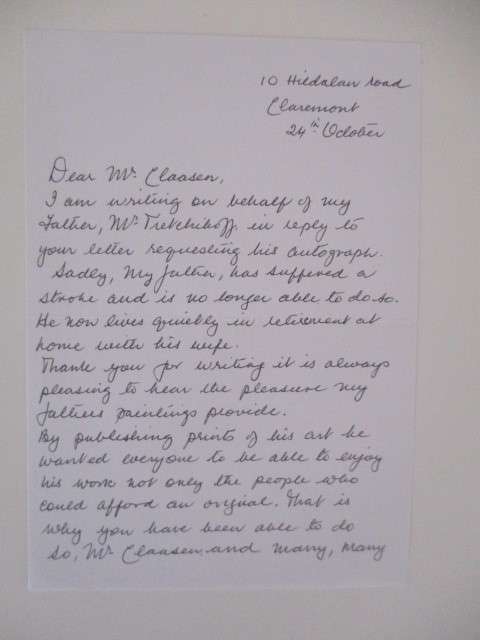 10 Hildalan road
Claremont
24th October
Dear Mr. Claasen,
I am writing on behalf of my
Father, Mr Tretchikoff in reply to
your letter requesting his autograph.
Sadly, my father, has suffered a
stroke and is no longer able to do so.
He now lives quietly in retirement at
home with his wife.
Thank you for writing it is always
pleasing to hear the pleasure my
fathers paintings provide.
By publishing prints of his art he
wanted everyone to be able to enjoy
his work not only the people who
could afford an original. That is
why you have been able to do
so, Mr Claasen and many, many